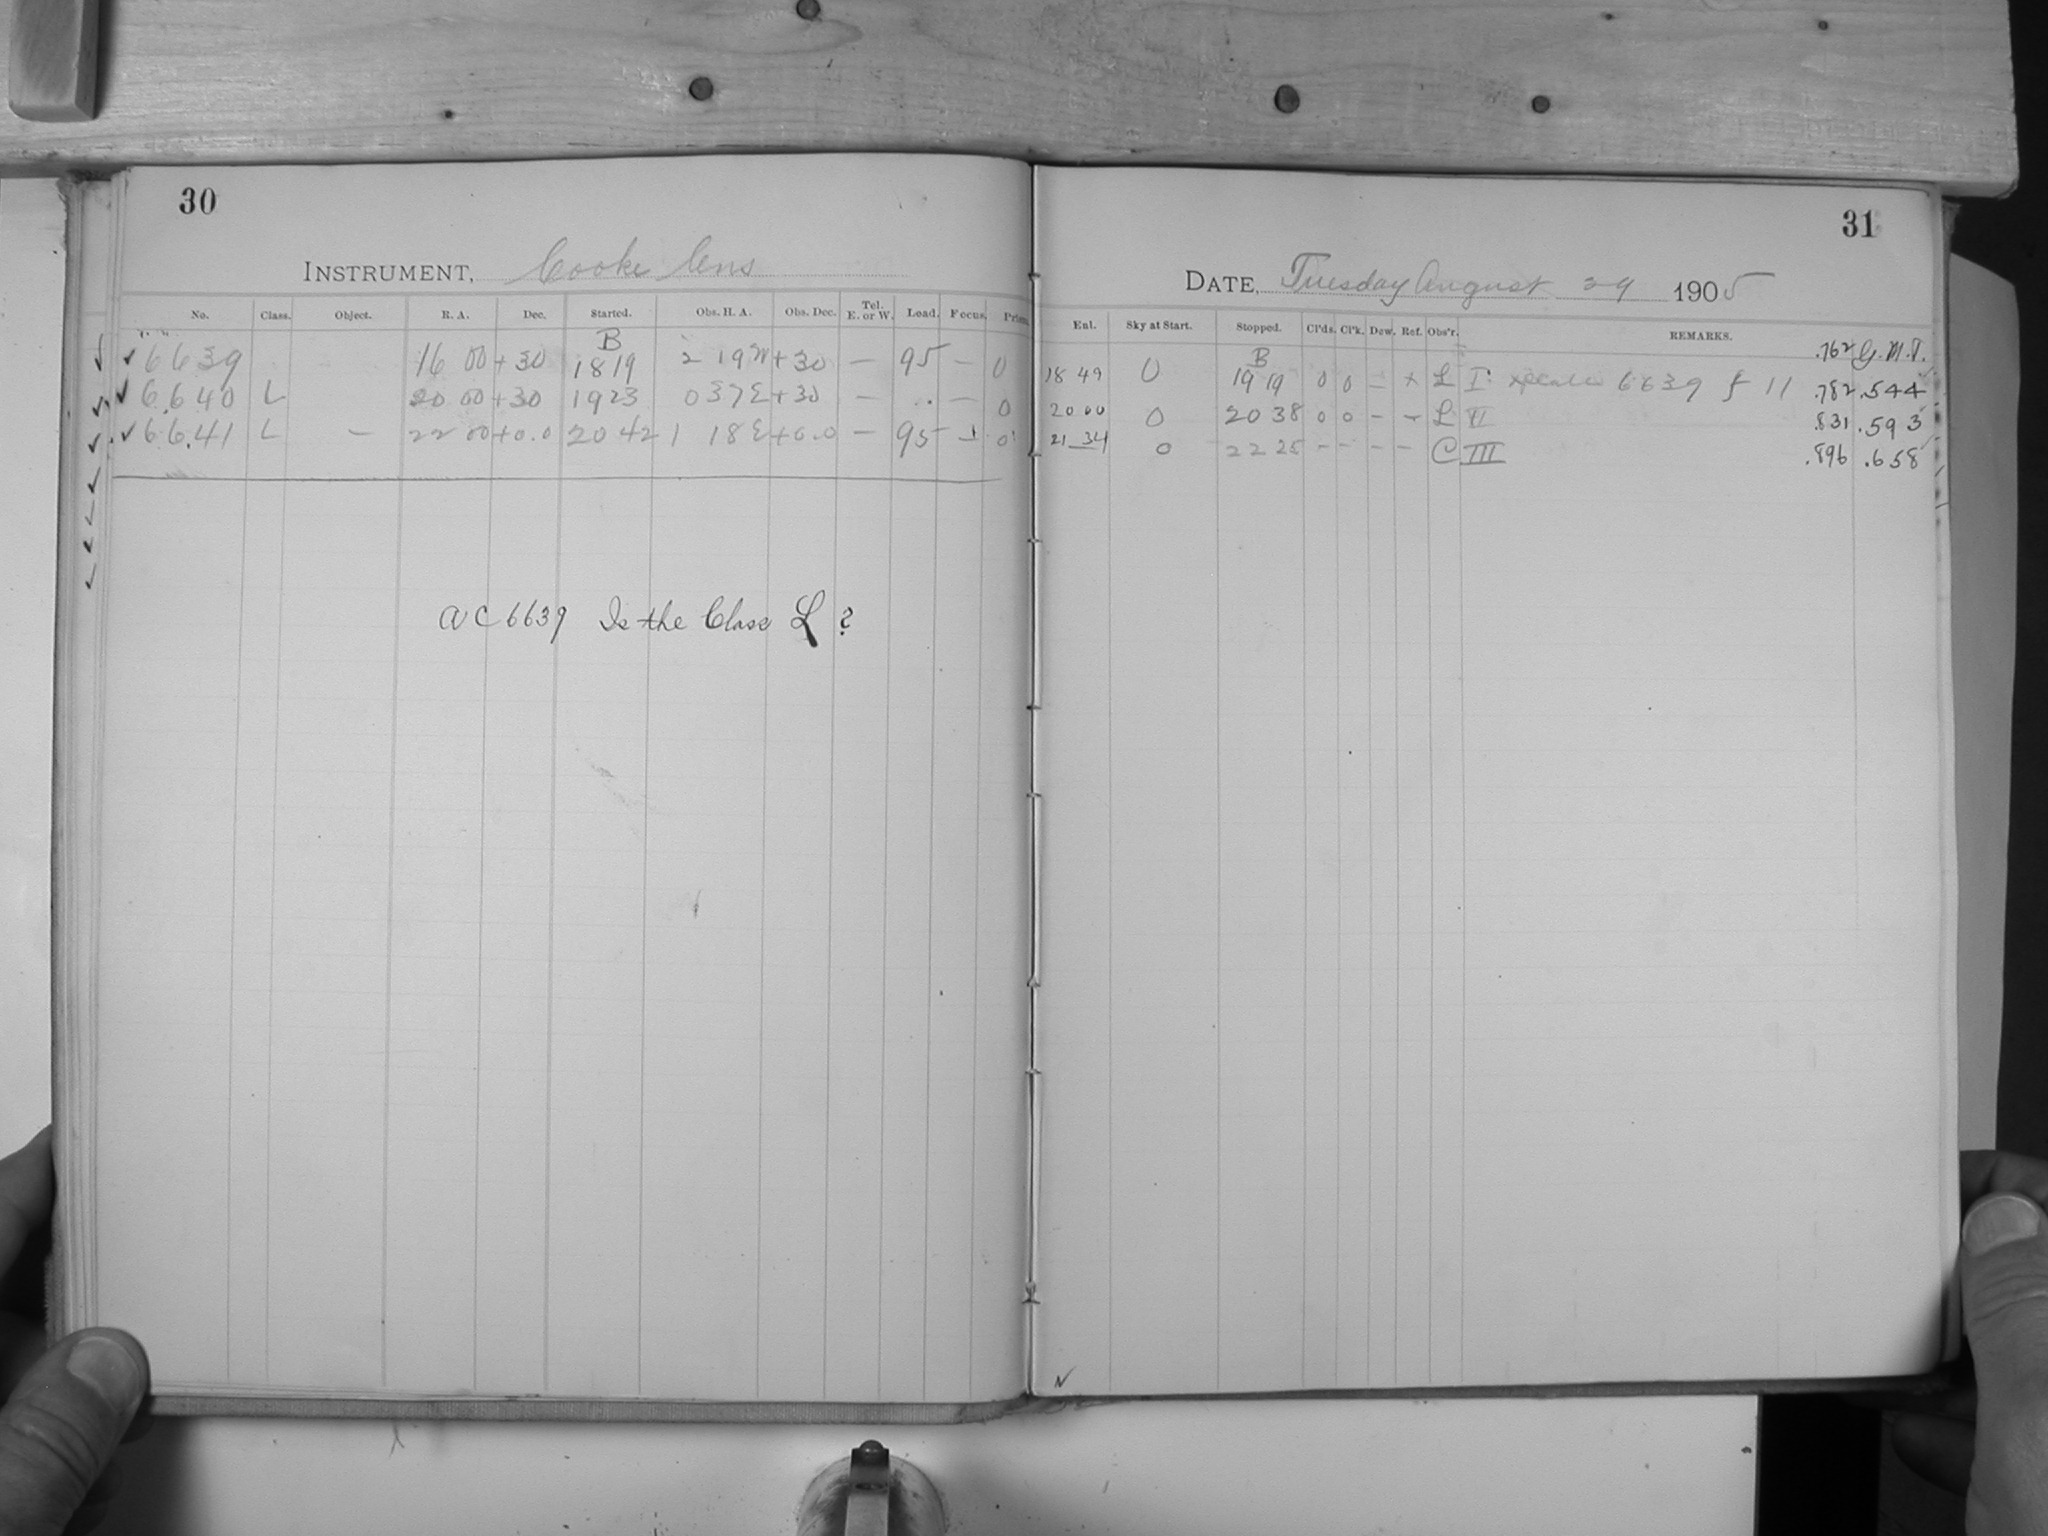 30
INSTRUMENT, Cooke lens
No. Class. Object. R. A. Dec. Started. Obs. H. A. Obs. Dec. Tel. E. or W. Load. Focus. Prism.
B
✓ 6639 16 00 +30 1819 2 19W +30 — 95 — 0
✓ 6640 L 20 00 +30 1923 0 37E +30 — .. — 0
✓ 6641 L — 22 00 +0.0 2042 1 18E +0.0 — 95 0
AC 6639 Is the Class L ?
31
DATE, Tuesday August 29 1905
Ent. Sky at Start. Stopped. Cl'ds. Cl'k. Dew. Ref. Obs'r. REMARKS.
.762 G.M.T.
B
18 49 0 19 19 0 0 — + L I 6639 f 11 .782 .544
20 00 0 20 38 0 0 — — L II .831 .593
21 34 0 22 25 — — — — C III .896 .658